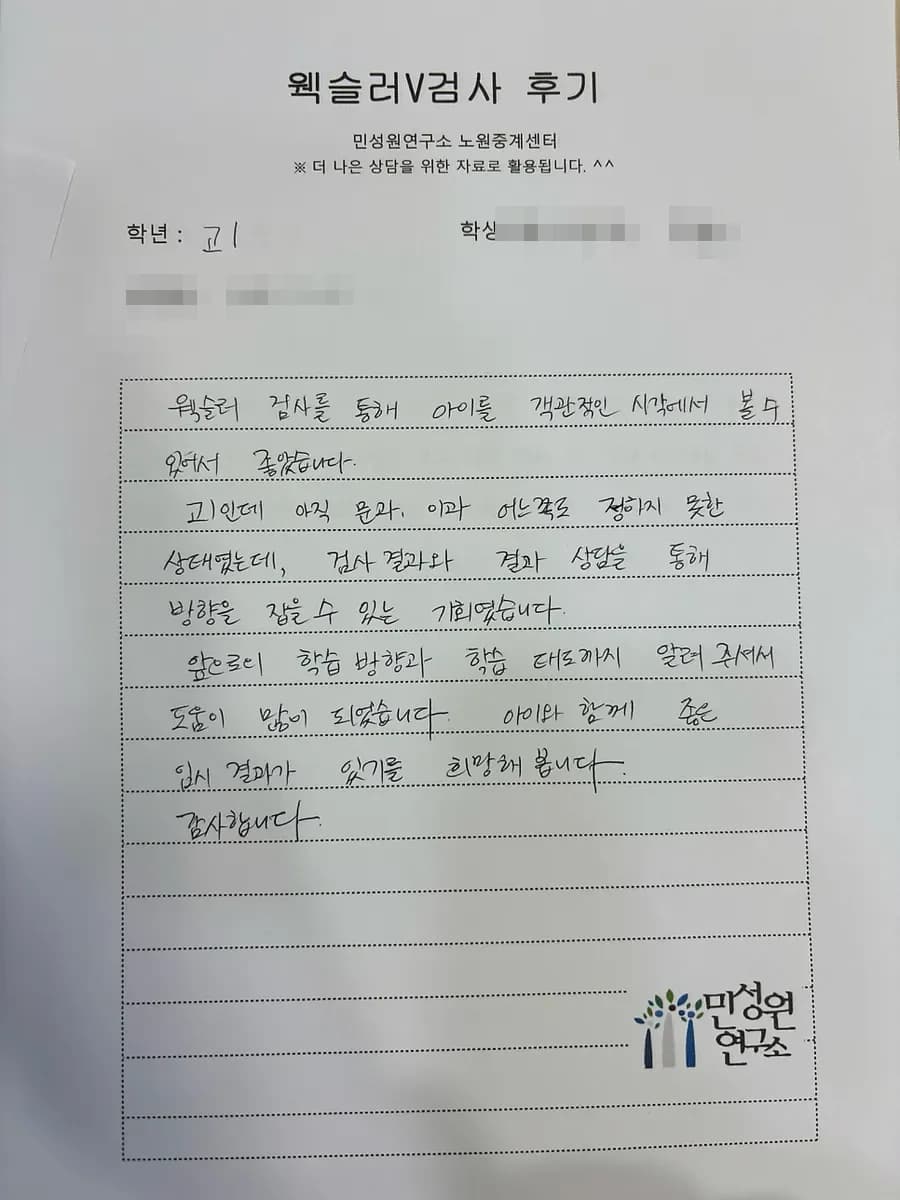 웩슬러V검사 후기
민성원연구소 노원중계센터
※ 더 나은 상담을 위한 자료로 활용됩니다. ^^
학년 : 고1
학생
웩슬러 검사를 통해 아이를 객관적인 시각에서 볼 수
있어서 좋았습니다.
고1인데 아직 문과, 이과 어느쪽도 정하지 못한
상태였는데, 검사 결과와 결과 상담을 통해
방향을 잡을 수 있는 기회였습니다.
앞으로의 학습 방향과 학습 태도까지 알려 주셔서
도움이 많이 되었습니다. 아이와 함께 좋은
입시 결과가 있기를 희망해 봅니다.
감사합니다.
민성원
연구소